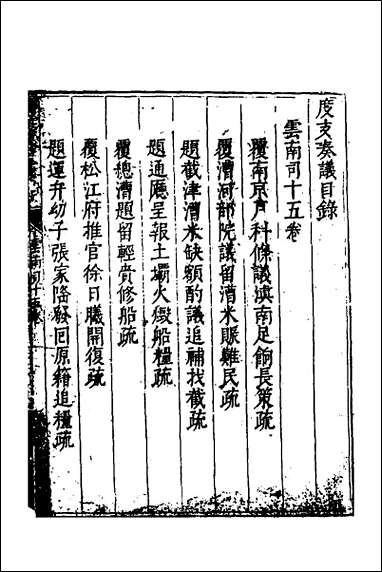 度支奏議目錄
雲南司十五卷
覆南京戶科條議滇南足餉長策疏
覆漕河部院議留漕米賑難民疏
題截津漕米缺額酌議追補找截疏
題通廳呈報土壩火燬船糧疏
覆總漕題留輕賫修船疏
覆松江府推官徐日曦開復疏
題運弁幼子張家隆發回原籍追糧疏